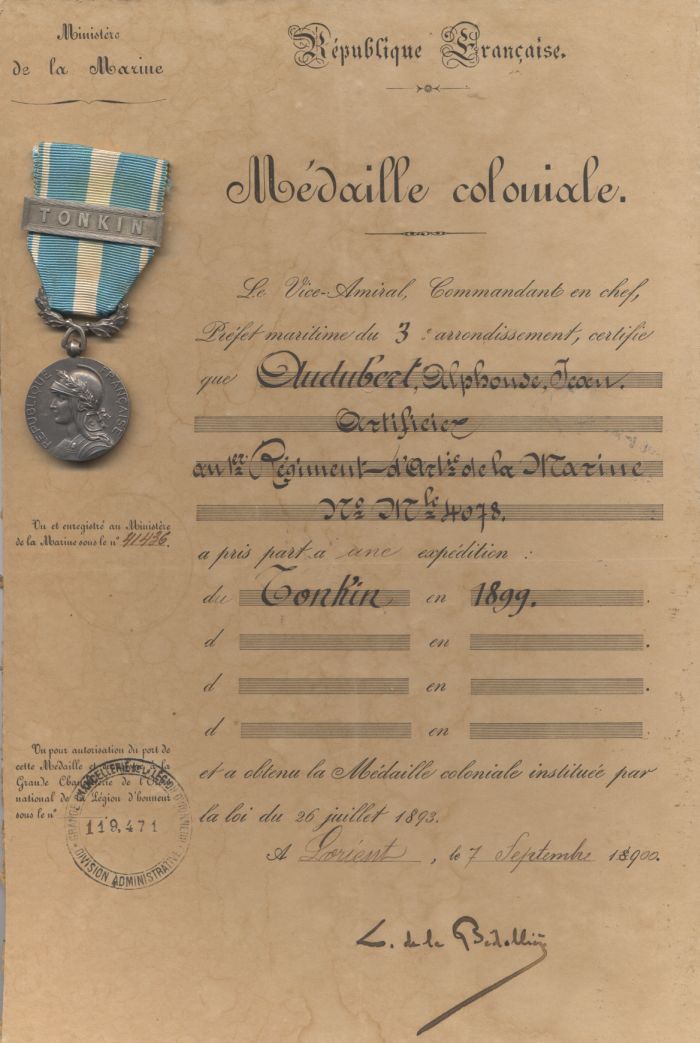 Ministère
de la Marine
République Française.
Médaille coloniale.
TONKIN
RÉPUBLIQUE FRANÇAISE
Le Vice-Amiral, Commandant en chef,
Préfet maritime du 3e arrondissement, certifie
que Audubert, Alphonse, Jean.
Artificier
au 1er Régiment d'Artie de la Marine
No Mle 4078.
Vu et enregistré au Ministère
de la Marine sous le n° 41436.
a pris part à une expédition :
du Tonkin en 1899.
d en .
d en .
d en .
Vu pour autorisation du port de
cette Médaille et
Grande Chancellerie de l'Ordre
national de la Légion d'honneur
sous le n°
GRANDE CHANCELLERIE DE LA LÉGION D'HONNEUR
119.471
DIVISION ADMINISTRATIVE
et a obtenu la Médaille coloniale instituée par
la loi du 26 juillet 1893.
A Lorient, le 7 Septembre 1900.
L. de la Bédollière